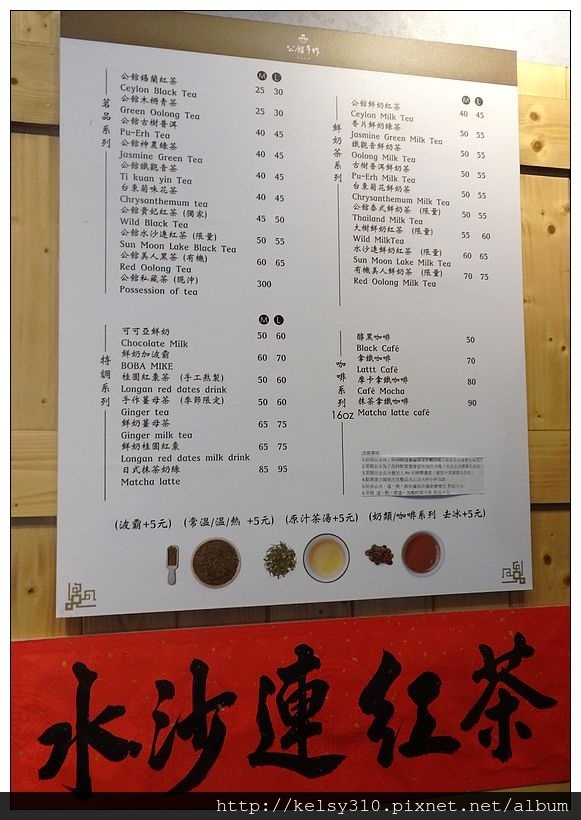 公館手作
茗品系列
M L
公館錫蘭紅茶
Ceylon Black Tea 25 30
公館木柵青茶
Green Oolong Tea 25 30
公館古樹普洱
Pu-Erh Tea 40 45
公館神農綠茶
Jasmine Green Tea 40 45
公館鐵觀音茶
Ti kuan yin Tea 40 45
台東菊味花茶
Chrysanthemum tea 40 45
公館貴妃紅茶 (獨家)
Wild Black Tea 45 50
公館水沙連紅茶 (限量)
Sun Moon Lake Black Tea 50 55
公館美人黑茶 (有機)
Red Oolong Tea 60 65
公館私藏茶 (現沖)
Possession of tea 300
鮮奶茶系列
M L
公館鮮奶紅茶
Ceylon Milk Tea 40 45
香片鮮奶綠茶
Jasmine Green Milk Tea 50 55
鐵觀音鮮奶茶
Oolong Milk Tea 50 55
古樹普洱鮮奶茶
Pu-Erh Milk Tea 50 55
台東菊花鮮奶茶
Chrysanthemum Milk Tea 50 55
公館泰式鮮奶茶 (限量)
Thailand Milk Tea 50 55
大樹鮮奶紅茶 (限量)
Wild MilkTea 55 60
水沙連鮮奶紅茶 (限量)
Sun Moon Lake Milk Tea 60 65
有機美人鮮奶茶 (限量)
Red Oolong Milk Tea 70 75
特調系列
M L
可可亞鮮奶 50 60
Chocolate Milk
鮮奶加波霸 60 70
BOBA MIKE
桂圓紅棗茶 (手工熬製) 50 60
Longan red dates drink
手作薑母茶 (季節限定) 50 60
Ginger tea
鮮奶薑母茶 65 75
Ginger milk tea
鮮奶桂圓紅棗 65 75
Longan red dates milk drink
日式抹茶奶綠 85 95
Matcha latte
咖啡系列
16oz
醇黑咖啡 50
Black Café
拿鐵咖啡 70
Lattt Café
摩卡拿鐵咖啡 80
Café Mocha
抹茶拿鐵咖啡 90
Matcha latte café
注意事項
(波霸+5元) (常溫/溫/熱 +5元) (原汁茶湯+5元) (奶類/咖啡系列 去冰+5元)
水沙連紅茶
http://kelsy310.pixnet.net/album